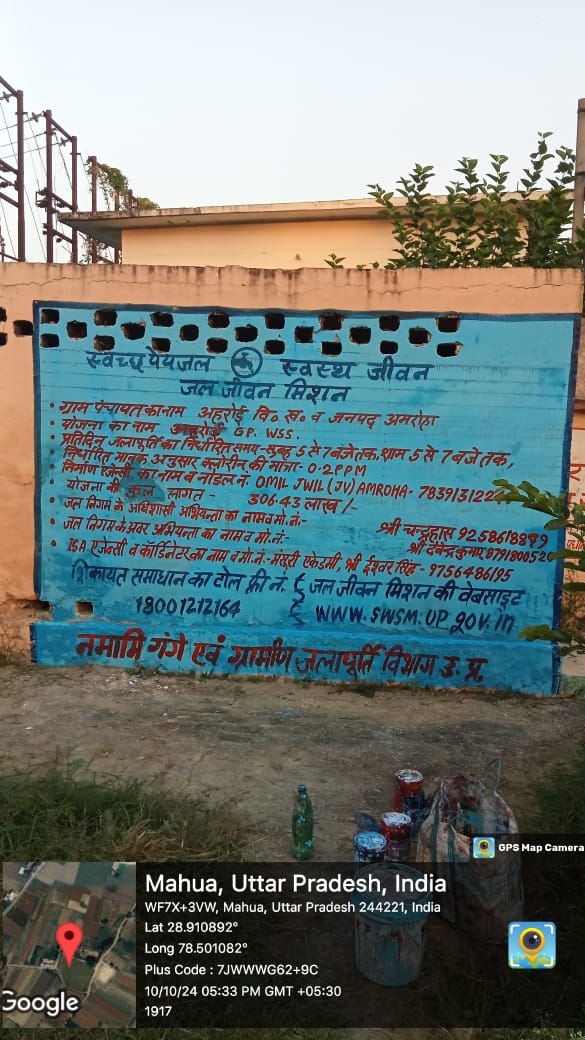 स्वच्छ पेयजल स्वस्थ जीवन
जल जीवन मिशन
• ग्राम पंचायत का नाम अहरोई वि० ख० व जनपद अमरोहा
• योजना का नाम अहरोई GP. WSS.
• प्रतिदिन जलापूर्ति का निर्धारित समय-सुबह 5 से 7 बजे तक, शाम 5 से 7 बजे तक,
निर्धारित मानक अनुसार क्लोरीन की मात्रा- 0.2PPM
निर्माण एजेन्सी का नाम व नोडल नं. OMIL JWIL (JV) AMROHA-
• योजना की कुल लागत - 306.43 लाख /-
• जल निगम के अधिशासी अभियन्ता का नाम व मो.नं:- श्री चन्द्रहास 9258618899
• जल निगम के अवर अभियन्ता का नाम व मो.नं:- श्री देवेन्द्र कुमार 8791800520
• ISA एजेन्सी व कॉर्डिनेटर का नाम व मो.नं:- मंसूरी एकेडमी, श्री ईश्वर सिंह- 9756486195
शिकायत समाधान का टोल फ्री नं. जल जीवन मिशन की वेबसाइट
18001212164 WWW.SWSM.UP.gov.in
नमामि गंगे एवं ग्रामीण जलापूर्ति विभाग उ. प्र.
GPS Map Camera
Mahua, Uttar Pradesh, India
WF7X+3VW, Mahua, Uttar Pradesh 244221, India
Lat 28.910892°
Long 78.501082°
Plus Code : 7JWWWG62+9C
10/10/24 05:33 PM GMT +05:30
1917
Google